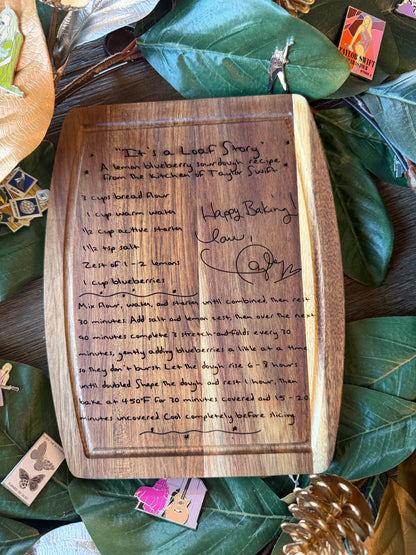 "It's a Loaf Story"
A lemon blueberry sourdough recipe
from the kitchen of Taylor Swift
3 cups bread flour
1 cup warm water
1/2 cup active starter
1 1/2 tsp salt
Zest of 1-2 lemons
1 cup blueberries
Happy Baking!
Love,
Taylor
Mix flour, water, and starter until combined, then rest
30 minutes. Add salt and lemon zest, then over the next
90 minutes complete 3 stretch-and-folds every 30
minutes, gently adding blueberries a little at a time
so they don't burst. Let the dough rise 6-8 hours
until doubled. Shape the dough and rest 1 hour, then
bake at 450°F for 30 minutes covered and 15-20
minutes uncovered. Cool completely before slicing
TAYLOR SWIFT